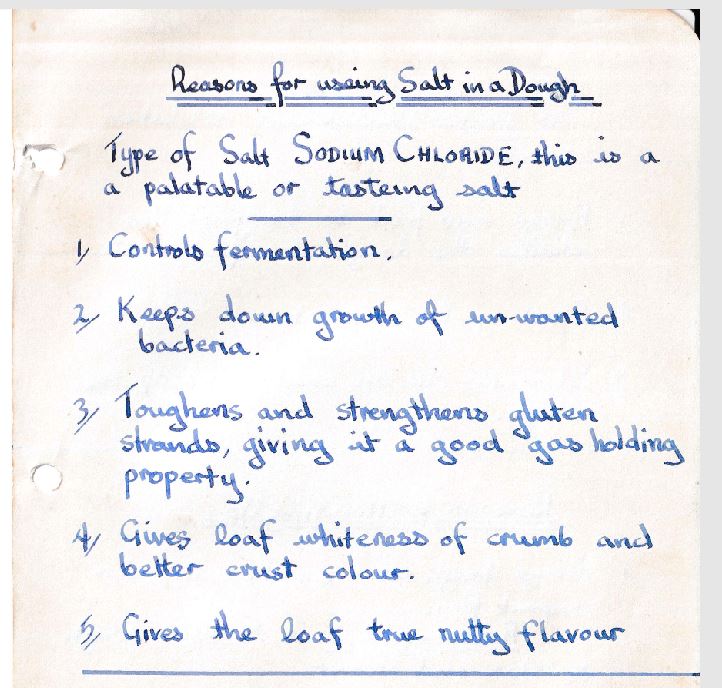 Reasons for useing Salt in a Dough
Type of Salt SODIUM CHLORIDE, this is a
a palatable or tasteing salt
1, Controls fermentation.
2, Keeps down growth of un-wanted
bacteria.
3, Toughens and strengthens gluten
strands, giving it a good gas holding
property.
4, Gives loaf whiteness of crumb and
better crust colour.
5, Gives the loaf true nutty flavour